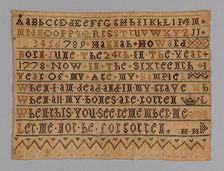 AabBcCdDeEfFGgHhIiKkLlMm
NnOoPpQRrSsTtUVWXYZJJ
23456789 Hannah Howard
Born June The 24th in The Year
1778 Now in The Sixteenth
Year of My Age My Sample
When I Am dead And in Grave
When All My Bones Are rotten
When this You See remember me
Let Me Not be forgotten HH